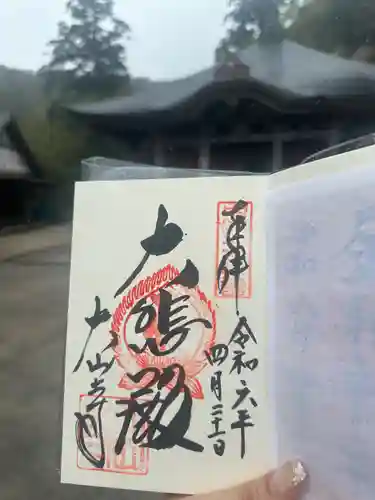 奉拝
令和六年
四月二十一日
大悲殿
大山寺